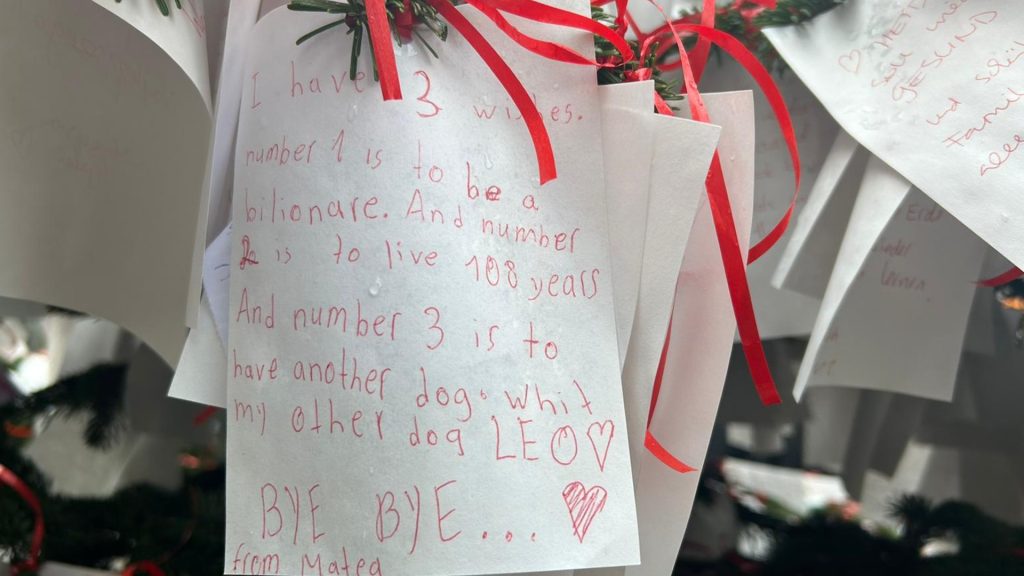 I have 3 wishes.
number 1 is to be a
bilionare. And number
2 is to live 108 years
And number 3 is to
have another dog. whit
my other dog LEO♡
BYE BYE... ♥
from Matea
GESUND
und
Famil
alle